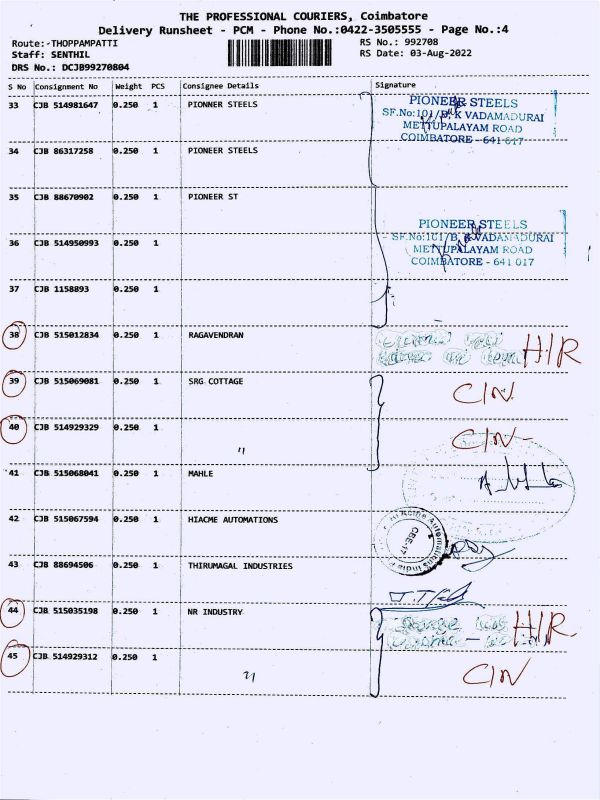 THE PROFESSIONAL COURIERS, Coimbatore
Delivery Runsheet - PCM - Phone No.:0422-3505555 - Page No.:4
Route:-THOPPAMPATTI RS No.: 992708
Staff: SENTHIL RS Date: 03-Aug-2022
DRS No.: DCJB99270804
S No Consignment No Weight PCS Consignee Details Signature
33 CJB 514981647 0.250 1 PIONNER STEELS
PIONEER STEELS
SF.No:101/B, K VADAMADURAI
METTUPALAYAM ROAD
COIMBATORE - 641 017
34 CJB 86317258 0.250 1 PIONEER STEELS
35 CJB 88670902 0.250 1 PIONEER ST
PIONEER STEELS
SF.No:101/B, K VADAMADURAI
METTUPALAYAM ROAD
COIMBATORE - 641 017
36 CJB 514950993 0.250 1
37 CJB 1158893 0.250 1
38 CJB 515012834 0.250 1 RAGAVENDRAN H/R
39 CJB 515069081 0.250 1 SRG COTTAGE C/N
40 CJB 514929329 0.250 1 " C/N -
41 CJB 515068041 0.250 1 MAHLE
42 CJB 515067594 0.250 1 HIACME AUTOMATIONS
CBE-17
43 CJB 88694506 0.250 1 THIRUMAGAL INDUSTRIES
44 CJB 515035198 0.250 1 NR INDUSTRY H/R
45 CJB 514929312 0.250 1 " C/N